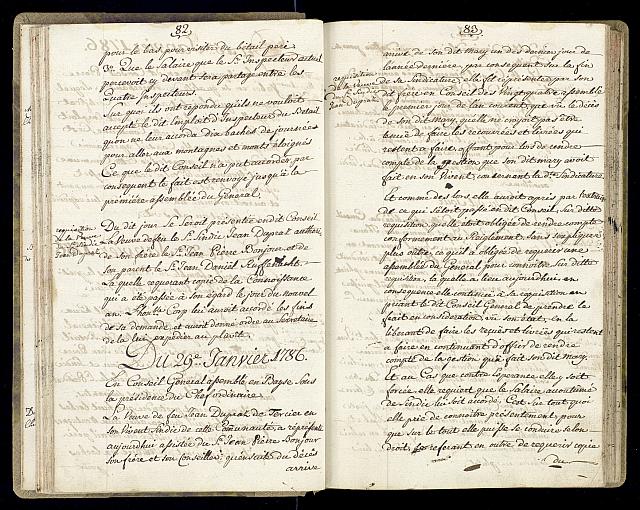 82
pour le bas pour visiter du betail peri
3.º Que le Salaire que le Sr. Inspecteur actuel
percevoit cy devant sera partagé entre les
Quatre Inspecteurs.
Sur quoi ils ont repondu qu'ils ne vouloit
accepté le dit Emploit d'Inspecteur du Betail
qu'on ne leur accorda dix baches de journees
pour aller aux montagnes et monts eloignés
Ce que le dit Conseil n'a put accorder par
consequent le fait est renvoyé jusqu'à la
premiere assemblée du General,
requisition
de la Veuve
Sindic
Jean Dupraz
Du dit jour se seroit presentée en dit Conseil
la Veuve de feu le Sr. Sindic Jean Dupraz authorisée
de son frere le Sr. Jean Pierre Bonjour, et de
son parent le Sr. Jean Daniel
La quelle requerant copie de la Connoissance
qui a été passée à son egard le jour du nouvel
an. Honble. Corp lui auroit accordé les fins
de sa demande, et auroit donné ordre au Secretaire
de la lui expedier au plutôt.
Du 29e. Janvier 1786.
En Conseil General assemblé en Bapse Sous
la présidence du Chef ordinaire
La Veuve de feu Jean Dupraz de Torcier en
son Vivant Sindic de cette Communauté, a représenté
aujourdhui assistée du Sr. Jean Pierre Bonjour
son frere et son Conseiller, qu'ensuite du décès
arrivé
83
requisition
de la Veuve
Sindic
Jean Dupraz
arrivé de son dit mary un des derniers jour de
l'année derniere, par consequent sur la fin
de sa Sindicature, elle fit representer par son
dit frere en Conseil des Vingt quatre assemblé
le premier jour de l'an courent, que vu le déces
de son dit mary, quelle ne croyoit pas être
tenüe de faire les recouvrës et livrées qui
restent à faire, offrant pour lors de rendre
compte de la gestion que son dit mary avoit
fait en son Vivent concernant la dte. Sindicature
Et comme des lors elle auroit apris par l'extrait
de ce qui s'étoit passé en dit Conseil, sur dite
requisition, qu'elle étoit obligée de rendre compte
conformement au Reglement, sans s'expliquer
plus outre, ce qui a obligé de requerir une
assemblée du General pour connoitre sur dite
requision, la quelle a lieu aujourdhui en
consequence elle continuë à sa requisition en
priant le dit Conseil General de prendre le
fait en consideration, vu son état, En la
liberant de faire les reçues et livrées qui restent
à faire en continuant d'offrir de rendre
compte de la gestion qu'a fait son dit mary,
Et au Cas que contre Esperance elle y soit
forcée, elle requiert que le Salaire accoutumé
de Sindic lui soit accordé, C'est sur tout quoi
elle prie de connoitre présentement, pour
que sur le tout elle puisse se conduire selon
droit, se referant en outre de requerir copie
du